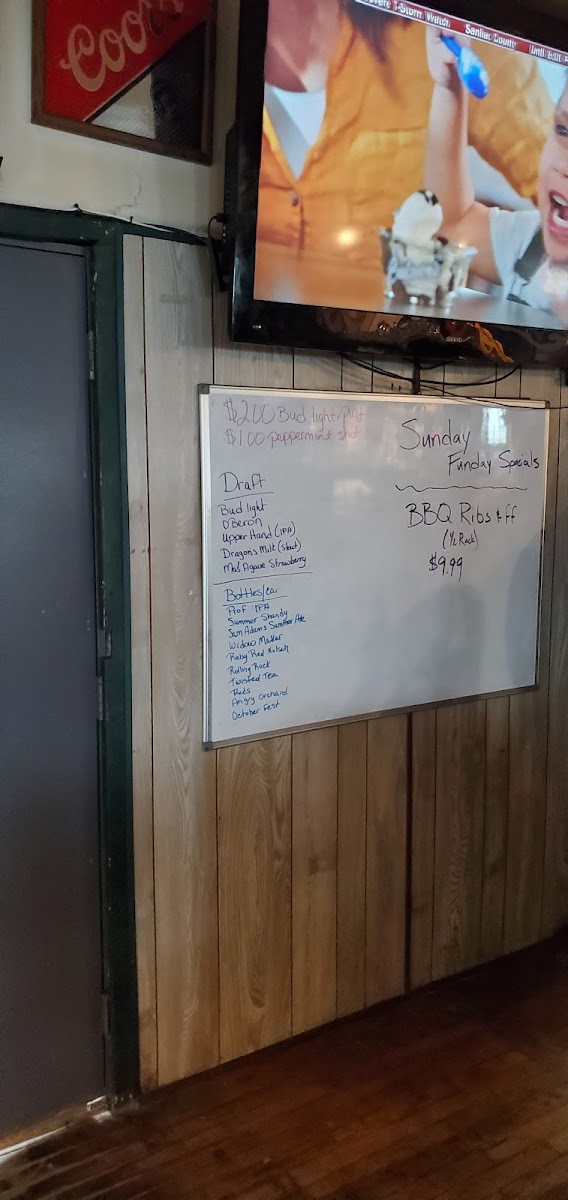 Coo
T-Storm Watch Sanilac County Until 8:00 P
SANYO
$2.00 Bud light/pint
$1.00 peppermint shot
Draft
Bud light
O'Beron
Upper Hand (IPA)
Dragons Milk (Stout)
Mod Agave Strawberry
Bottles/ca
Prof IPA
Summer Shandy
Sam Adams Summer Ale
Widow Maker
Ruby Red Kolsch
Rolling Rock
Twisted Tea
Reds
Angry Orchard
October Fest
Sunday
Funday Specials
BBQ Ribs & ff
(1/2 Rack)
$9.99